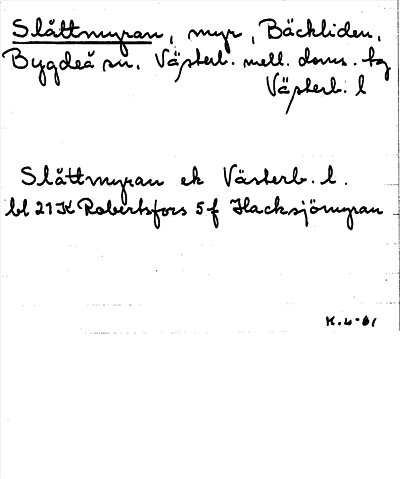 Slåttmyran, myr, Bäckliden,
Bygdeå sn. Västerb. mell. doms. tg
Västerb. l
Slåttmyran ek Västerb. l.
bl 21 K Robertsfors 5 f Hacksjömyran